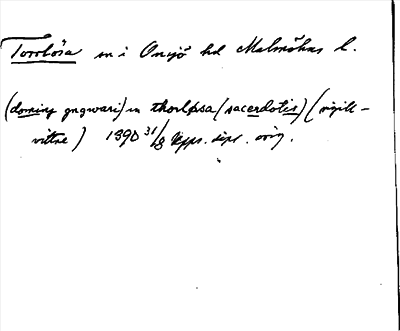 Torrlösa sn i Onsjö hd Malmöhus l.
(dominy gngwari) in thorløsa (sacerdotis) (sigill-
vittne) 1390 31/8 Upps. dipl. orig.